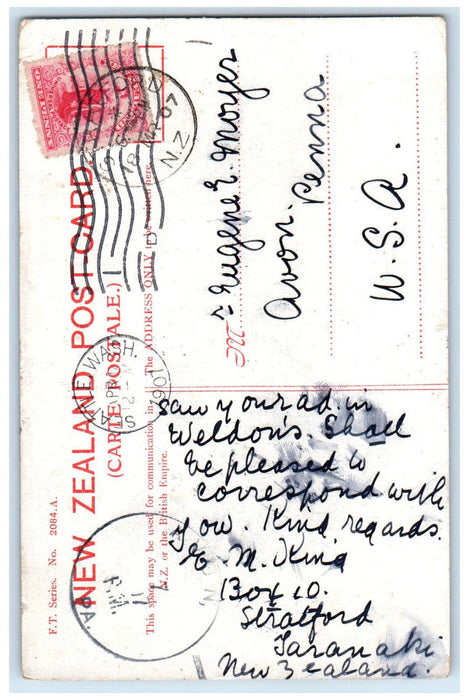 NEW ZEALAND POST CARD.
(CARTE POSTALE.)
F.T. Series. No. 2084.A.
This space may be used for communication in
N.Z. or the British Empire.
The ADDRESS ONLY to be written here.
N.Z
WASH.
1907
PA.
Mr Eugene E. Moyer
Avon. Penna
U.S.A.
Saw your ad. in
Weldon's. Shall
be pleased to
correspond with
you. Kind regards.
E. M. King
Box 10.
Stratford
Taranaki
New Zealand.